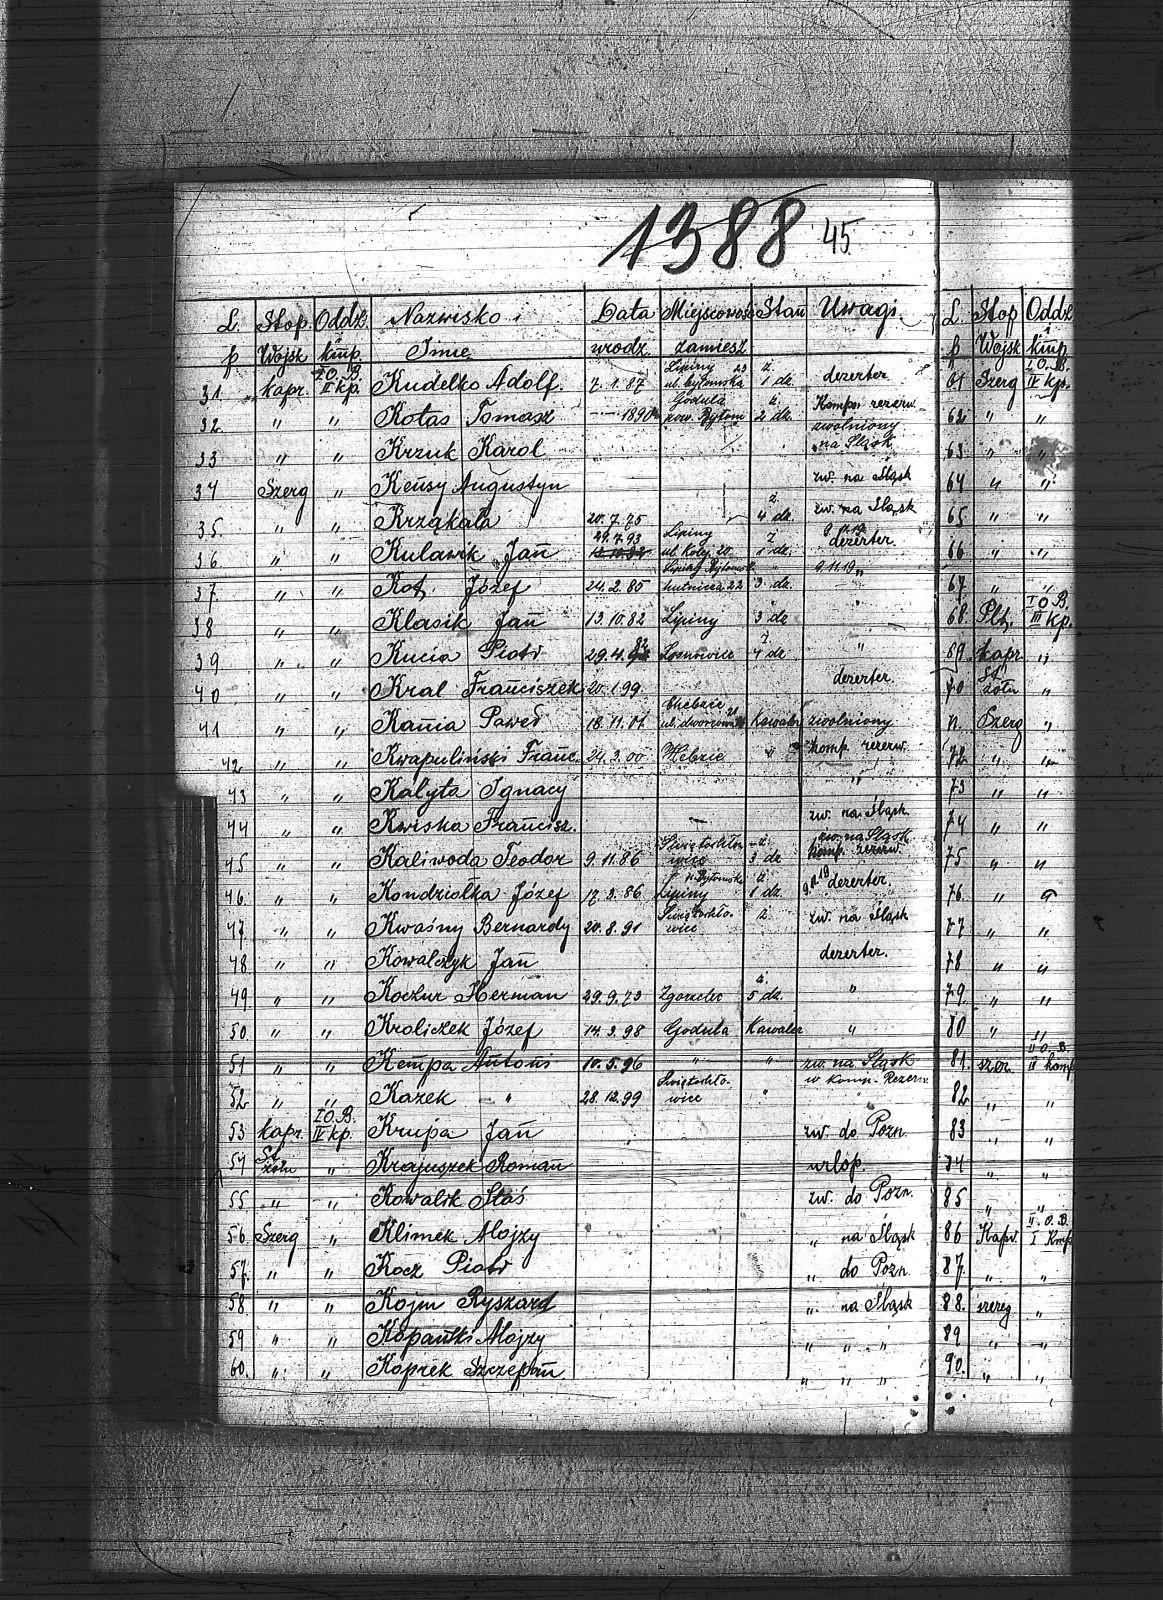 1388 45
L. Stop. Oddz. Nazwisko i Data Miejscowość Stan Uwagi.
p Wojsk kmp. Imie urodz. zamiesz
31 kapr. I O. B. II kp. Kudelko Adolf. 7.1.87 Lipiny 23 ul. bytomska ż. 1 dz. dezerter.
32 " " Kotas Tomasz 1890 Godula pow. Bytom ż. 2 dz. Komp. rezerw.
33 " " Krzuk Karol zwolniony na Śląsk
34 Szerg " Keusy Augustyn zw. na Śląsk
35 " " Krząkala 20.7.75 ż. 4 dz. zw. na Śląsk
36 " " Kulawik Jan 29.7.93 Lipiny ul. Kolej. 20 ż 1 dz. dezerter.
37 " " Kot Józef 24.2.85 Lipiny hutnicza 22 " 3 dz. 9.11.19 "
38 " " Klasik Jan 13.10.82 Lipiny " 3 dz. "
39 " " Kucia Piotr 29.4. ż 4 dz. "
40 " " Kral Franciszek 20.1.99. dezerter.
41 " " Kania Paweł 18.11.01 Chebzie ul. dworcowa 21 Kawaler zwolniony
42 " " Kwapuliński Franc. 24.3.00 Chebzie " komp. rezerw.
43 " " Kalyta Ignacy "
44 " " Kwiska Francisz. zw. na Śląsk.
45 " " Kaliwoda Teodor 9.11.86 Świętochłowice ż. 3 dz zw. na Śląsk komp. rezerw.
46 " " Kondziołka Józef 17.3.86 Lipiny ż 1 dz. dezerter.
47 " " Kwaśny Bernardy 20.8.91 Świętochłowice ż zw. na Śląsk
48 " " Kowalczyk Jan dezerter.
49 " " Koczur Herman 29.9.73 Zgorzelec ż. 5 dz. "
50 " " Kroliczek Józef 14.3.98 Godula Kawaler "
51 " " Kempa Antoni 10.5.96 " " zw. na Śląsk
52 " " Kazek " 28.12.99 Świętochłowice " w komp. Rezerw.
53 kapr. I O. B. IV kp. Krupa Jan zw. do Pozn.
54 St. żołn " Krajuszek Roman urlop.
55 " " Kowalik Staś zw. do Pozn.
56 Szerg " Klimek Alojzy " na Śląsk
57. " " Kocz Piotr " do Pozn.
58 " " Kojm Ryszard " na Śląsk
59 " " Kopański Alojzy " " "
60. " " Koprek Szczepan " " "
L. Stop Oddz
p Wojsk kmp.
61 Szerg I O. B. IV kp.
62 " "
63 " "
64 " "
65 " "
66 " "
67 " "
68 Plt. I O B. III kp.
69 kapr "
70 St. żołn "
71. Szerg "
72 " "
73 " "
74 " "
75 " "
76 "
77 " "
78 " "
79. " "
80 "
81. szer. II O. B. II komp
82 " "
83 " "
84 " "
85 " "
86 Kapr. II. O. B. I Kmp
87. " "
88. szereg "
89 " "
90. " "